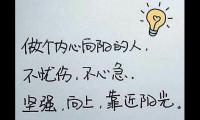 做个内心向阳的人,
不忧伤,不心急。
坚强,向上,靠近阳光。